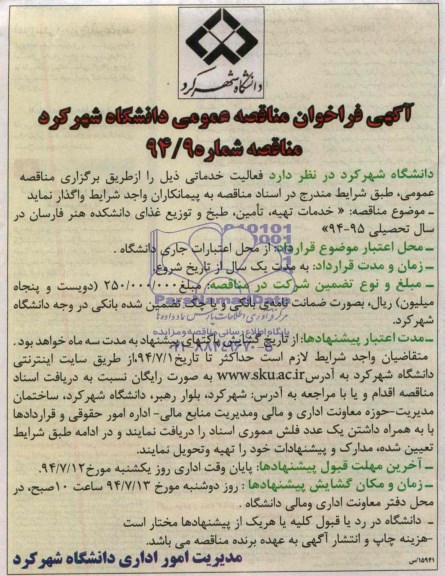 دانشگاه شهرکرد
آگهی فراخوان مناقصه عمومی دانشگاه شهرکرد
مناقصه شماره ۹۴/۹
دانشگاه شهرکرد در نظر دارد فعالیت خدماتی ذیل را ازطریق برگزاری مناقصه
عمومی، طبق شرایط مندرج در اسناد مناقصه به پیمانکاران واجد شرایط واگذار نماید
ـ موضوع مناقصه: « خدمات تهیه، تأمین، طبخ و توزیع غذای دانشکده هنر فارسان در
سال تحصیلی ۹۵-۹۴»
ـ محل اعتبار موضوع قرارداد: از محل اعتبارات جاری دانشگاه .
ـ زمان و مدت قرارداد: به مدت یک سال از تاریخ شروع.
ـ مبلغ و نوع تضمین شرکت در مناقصه: مبلغ ۲۵۰/۰۰۰/۰۰۰ (دویست و پنجاه
میلیون) ریال، بصورت ضمانت نامه‌ی بانکی و یا چک تضمین شده بانکی در وجه دانشگاه
شهرکرد.
ـ مدت اعتبار پیشنهادها: از تاریخ گشایش پاکتهای پیشنهاد به مدت سه ماه خواهد بود .
متقاضیان واجد شرایط لازم است حداکثر تا تاریخ ۹۴/۷/۱،از طریق سایت اینترنتی
دانشگاه شهرکرد به آدرس www.sku.ac.ir به صورت رایگان نسبت به دریافت اسناد
مناقصه اقدام و یا با مراجعه به آدرس: شهرکرد، بلوار رهبر، دانشگاه شهرکرد، ساختمان
مدیریت-حوزه معاونت اداری و مالی ومدیریت منابع مالی- اداره امور حقوقی و قراردادها
با به همراه داشتن یک عدد فلش مموری اسناد را دریافت نمایند و در ادامه طبق شرایط
تعیین شده، مدارک و پیشنهادات خود را تهیه وتحویل نمایند.
ـ آخرین مهلت قبول پیشنهادها: پایان وقت اداری روز یکشنبه مورخ ۹۴/۷/۱۲.
ـ زمان و مکان گشایش پیشنهادها : روز دوشنبه مورخ ۹۴/۷/۱۳ ساعت ۱۰صبح، در
محل دفتر معاونت اداری ومالی دانشگاه .
ـ دانشگاه در رد یا قبول کلیه یا هریک از پیشنهادها مختار است
-هزینه چاپ و انتشار آگهی به عهده برنده مناقصه می باشد.
مدیریت امور اداری دانشگاه شهرکرد
۱۵۹۴۱/س